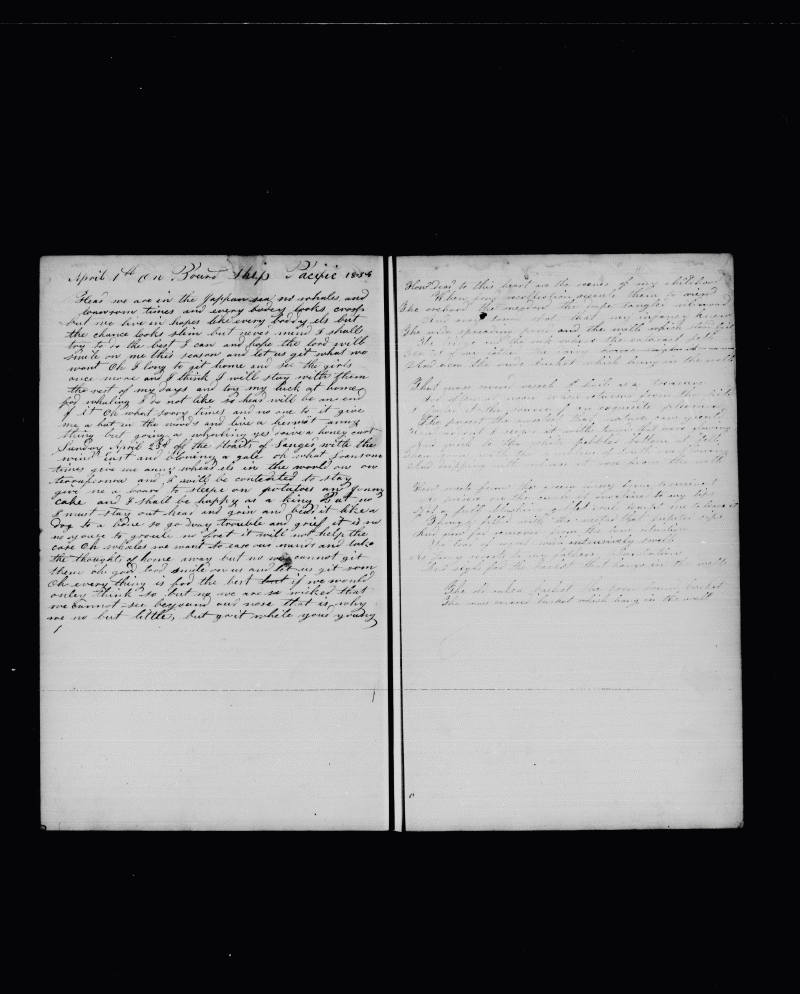 April 1st On Board Ship Pacific 1858
Hear we are in the Jappan sea no whales and
lonesom times and every bodey looks cross
but we live in hopes like every boddy els but
the chance looks slim but never mind I shall
try to do the best I can and hope the lord will
smile on me this season and let us get what we
want Oh I long to get home and see the girls
once more and I think I will stay with them
the rest of my days and try my luck at home
for whaling I do not like so hear will be an end
of it Oh what sorry times and no one to it give
me a hut in the woods and live a hermat
thing but going a whaleing yes
Sunday April 23d of the Straits of Sangar with the
wind East and blowing a gale oh what lonsome
times give me anny whear els in the world on
and I will be contented to stay
give me a board to sleepe on potatoes and Johnny
cake and I shall be happy as a king But no
I must stay out hear and grin and bear it like a
Dog to a bone so go way trouble and grief it is no
no youse to groule no first it will not help the
case Oh whales we want to ease our minds and take
the thoughts of home away but no we cannot git
them oh god lord smile on us and let us git som
Oh every thing is for the best if we would
onley think so but no we are so wicked that
we cannot see beyound our nose that is why
we no but little, but go it while your young
How dear to this heart are the scenes of my childhood
When fond recollection presents them to view
The orchard the meadow the deep tangled wildwood
And every loved spot that my infancy knew
The wide spreading pond and the mill which stood by it
The bridge and the rock where the cataract fell
And e'en the rude bucket which hung in the well
That moss covered vessel I hail as a treasure
For often at noon when returned from the field
I found it the source of an exquisite pleasure
The purest and sweetest that nature can yield
How ardent I seized it with hands that were glowing
And quick to the white pebbled bottom it fell
And dripping with coolness it rose from the well
How sweet from the green mossy brim to receive it
As poised on the curb it inclined to my lips
Not a full blushing goblet could tempt me to leave it
Though filled with the nectar that Jupiter sips
And now far removed from the loved situation
The tear of regret will intrusively swell
As fancy reverts to my fathers plantation
And sighs for the bucket that hangs in the well
The old oaken bucket the iron bound bucket
The moss covered bucket which hung in the well